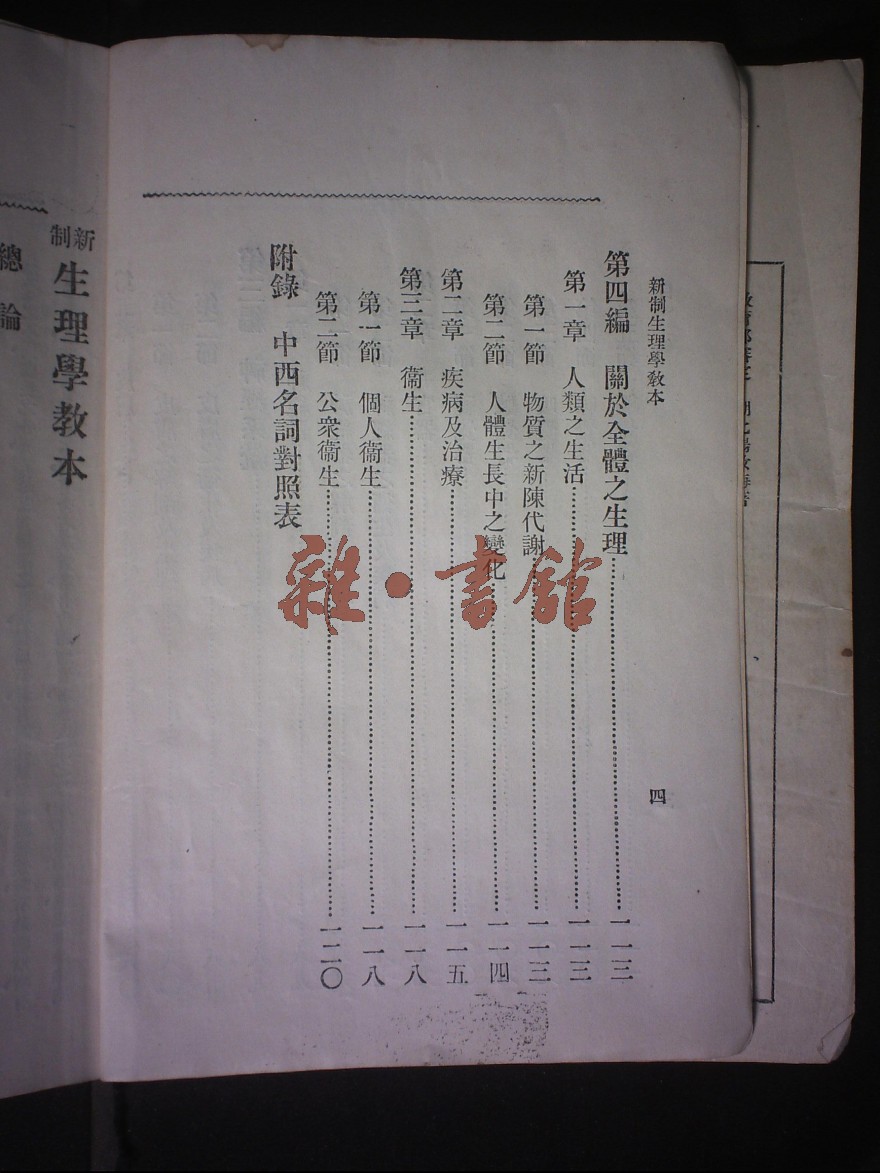 新制生理學教本
四
第四編 關於全體之生理……一一三
第一章 人類之生活……一一三
第一節 物質之新陳代謝……一一三
第二節 人體生長中之變化……一一四
第二章 疾病及治療……一一五
第三章 衞生……一一八
第一節 個人衞生……一一八
第二節 公衆衞生……一二〇
附錄 中西名詞對照表
新制生理學教本
總論
雜·書館